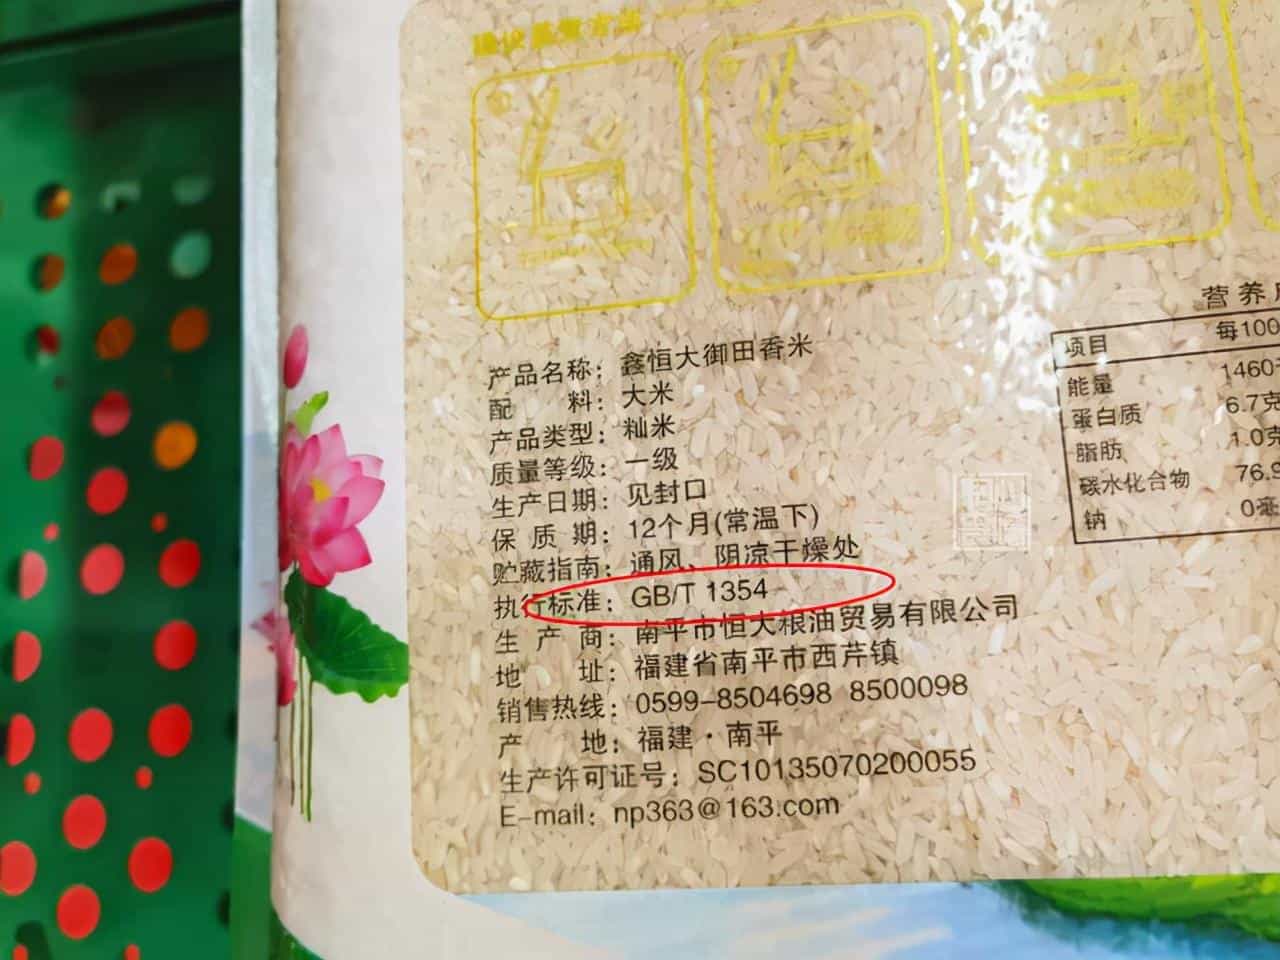 产品名称：鑫恒大御田香米
配 料：大米
产品类型：籼米
质量等级：一级
生产日期：见封口
保 质 期：12个月(常温下)
贮藏指南：通风、阴凉干燥处
执行标准：GB/T 1354
生 产 商：南平市恒大粮油贸易有限公司
地 址：福建省南平市西芹镇
销售热线：0599-8504698 8500098
产 地：福建·南平
生产许可证号：SC10135070200055
E-mail：np363@163.com
营养
项目 每100
能量 1460
蛋白质 6.7克
脂肪 1.0克
碳水化合物 76.9
钠 0毫